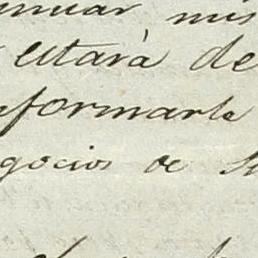 nuar mis
estará de
nformarle
gocios de su